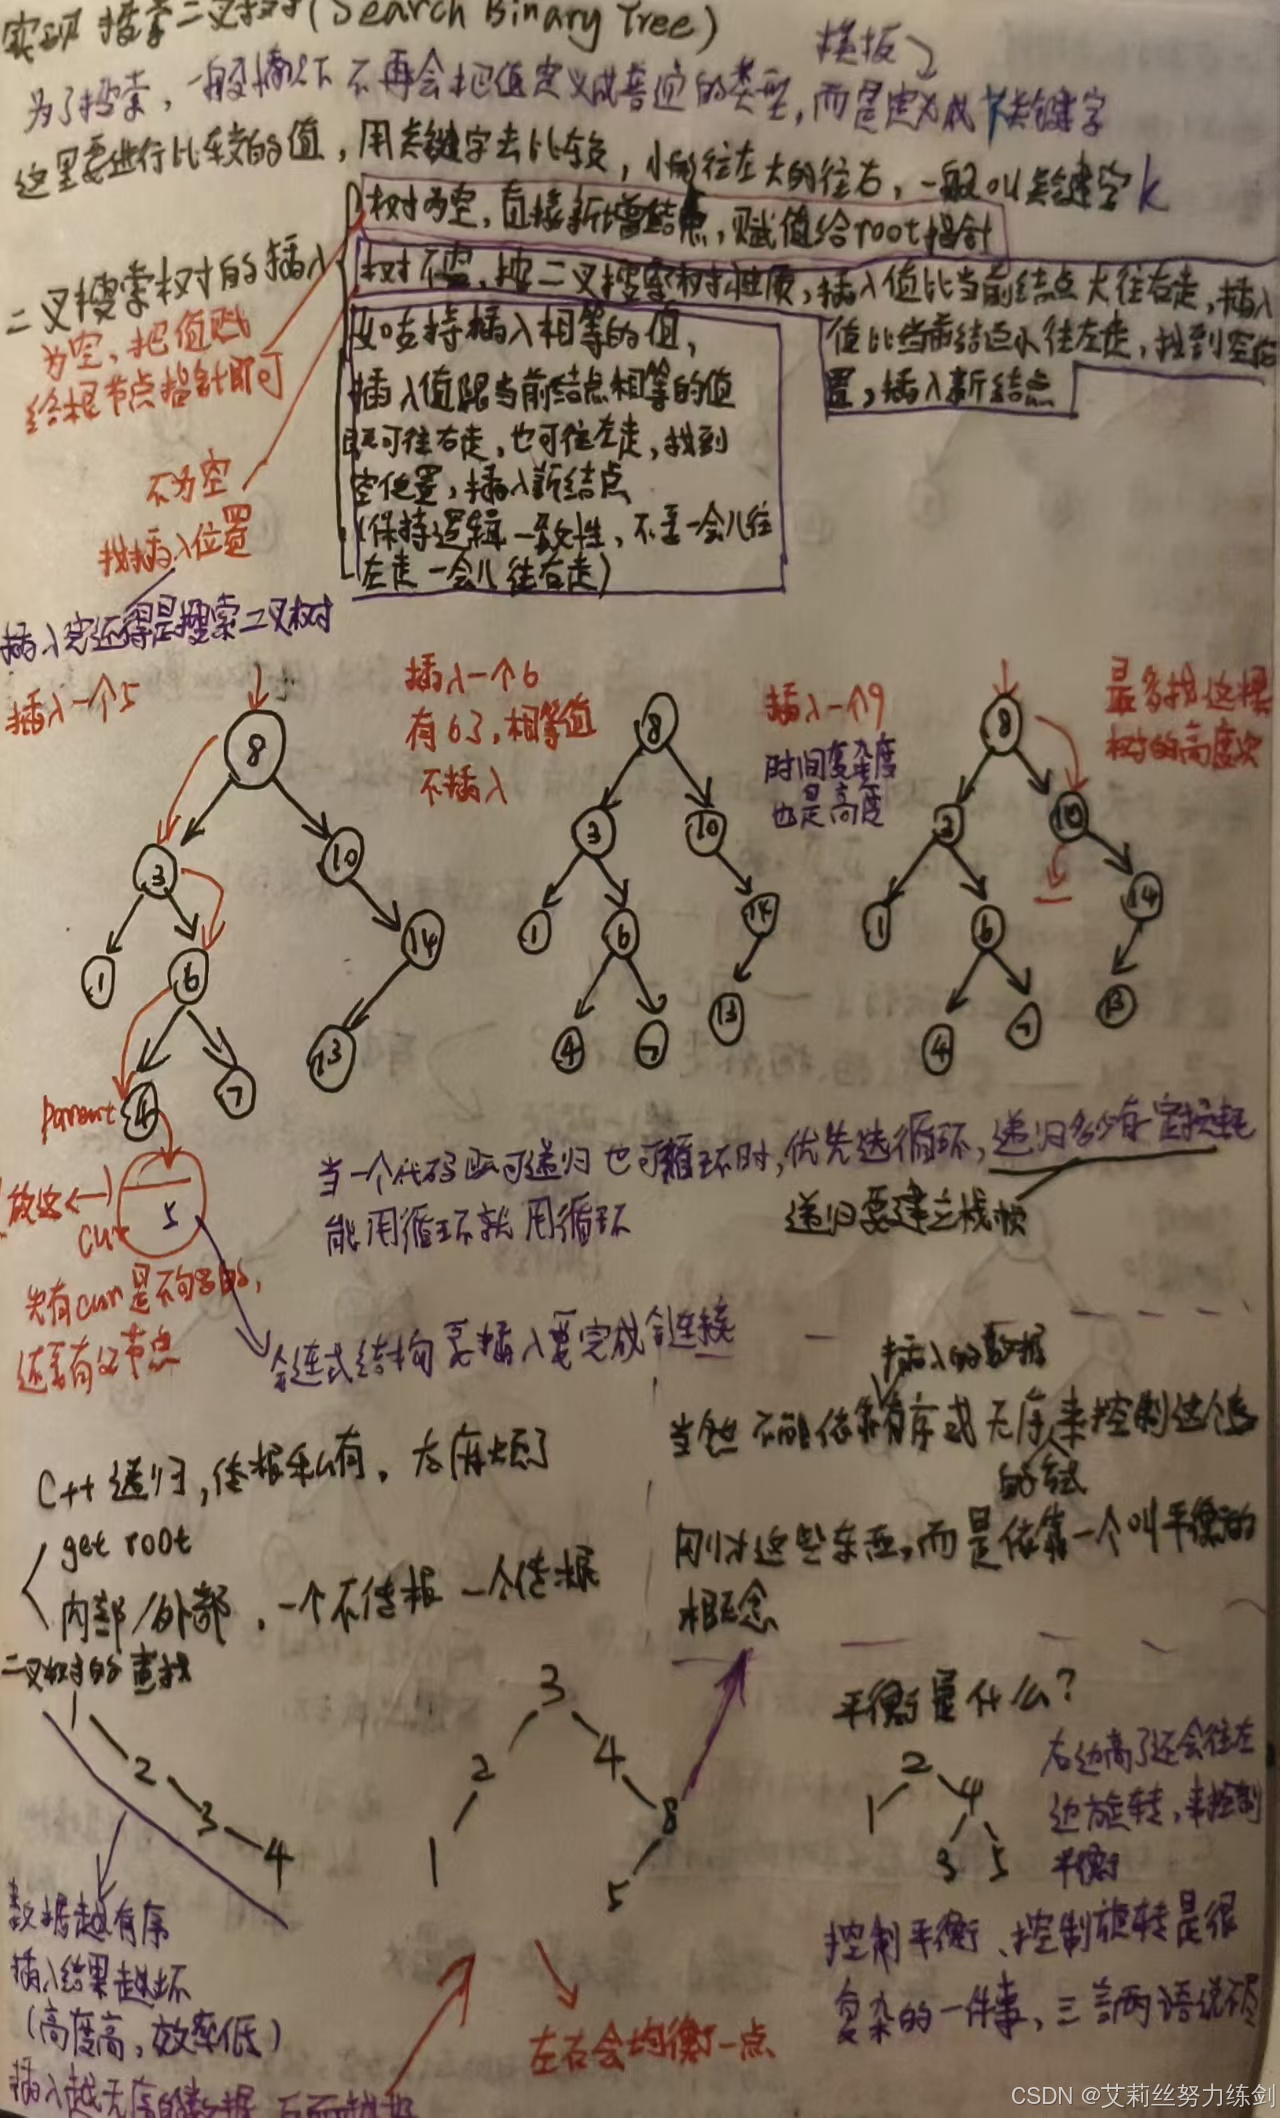 实现 搜索二叉树(Search Binary Tree)
模板
为了搜索，一般情况下不再会把值定义成普通的类型，而是定义成个关键字
这里要进行比较的值，用关键字去比较，小的往左大的往右，一般叫关键字k
二叉搜索树的插入
树为空，直接新增结点，赋值给root指针
树不空，按二叉搜索树性质，插入值比当前结点大往右走，插入
值比当前结点小往左走，找到空位
置，插入新结点
如支持插入相等的值，
插入值跟当前结点相等的值
既可往右走，也可往左走，找到
空位置，插入新结点
(保持逻辑一致性，不要一会儿往
左走一会儿往右走)
为空，把值赋
给根节点指针即可
不为空
找插入位置
插入完还得是搜索二叉树
插入一个5
8
3
10
1
6
14
4
7
13
parent
放这
5
cur
先有cur是不够的，
还要有父节点
插入一个6
有6了，相等值
不插入
8
3
10
1
6
14
4
7
13
插入一个9
时间复杂度
也是高度
8
3
10
1
6
14
4
7
13
最多找这棵
树的高度次
当一个代码既可递归也可循环时，优先选循环，递归多少有一定损耗
能用循环就用循环
递归要建立栈帧
链式结构要插入要完成链接
C++递归，传根私有，太麻烦了
get root
内部/外部，一个不传根 一个传根
插入的数据
当然不能依靠有序或无序来控制这个
的方式
刚才这些东西，而是依靠一个叫平衡的
概念
二叉树的查找
1
2
3
4
数据越有序
插入结果越坏
(高度高，效率低)
插入越无序的数据 反而越好
3
2
4
1
8
5
左右会均衡一点
平衡是什么?
2
1
4
3
5
右边高了还会往左
边旋转，来控制
平衡
控制平衡、控制旋转是很
复杂的一件事，三言两语说不尽
CSDN @艾莉丝努力练剑